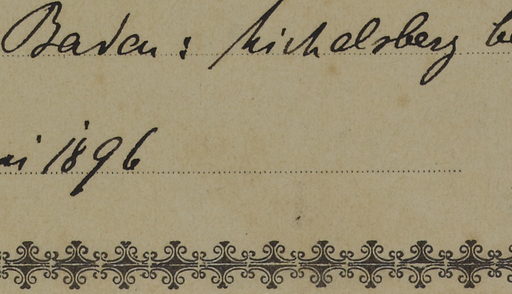 Baden: Michelsberg be
ni 1896